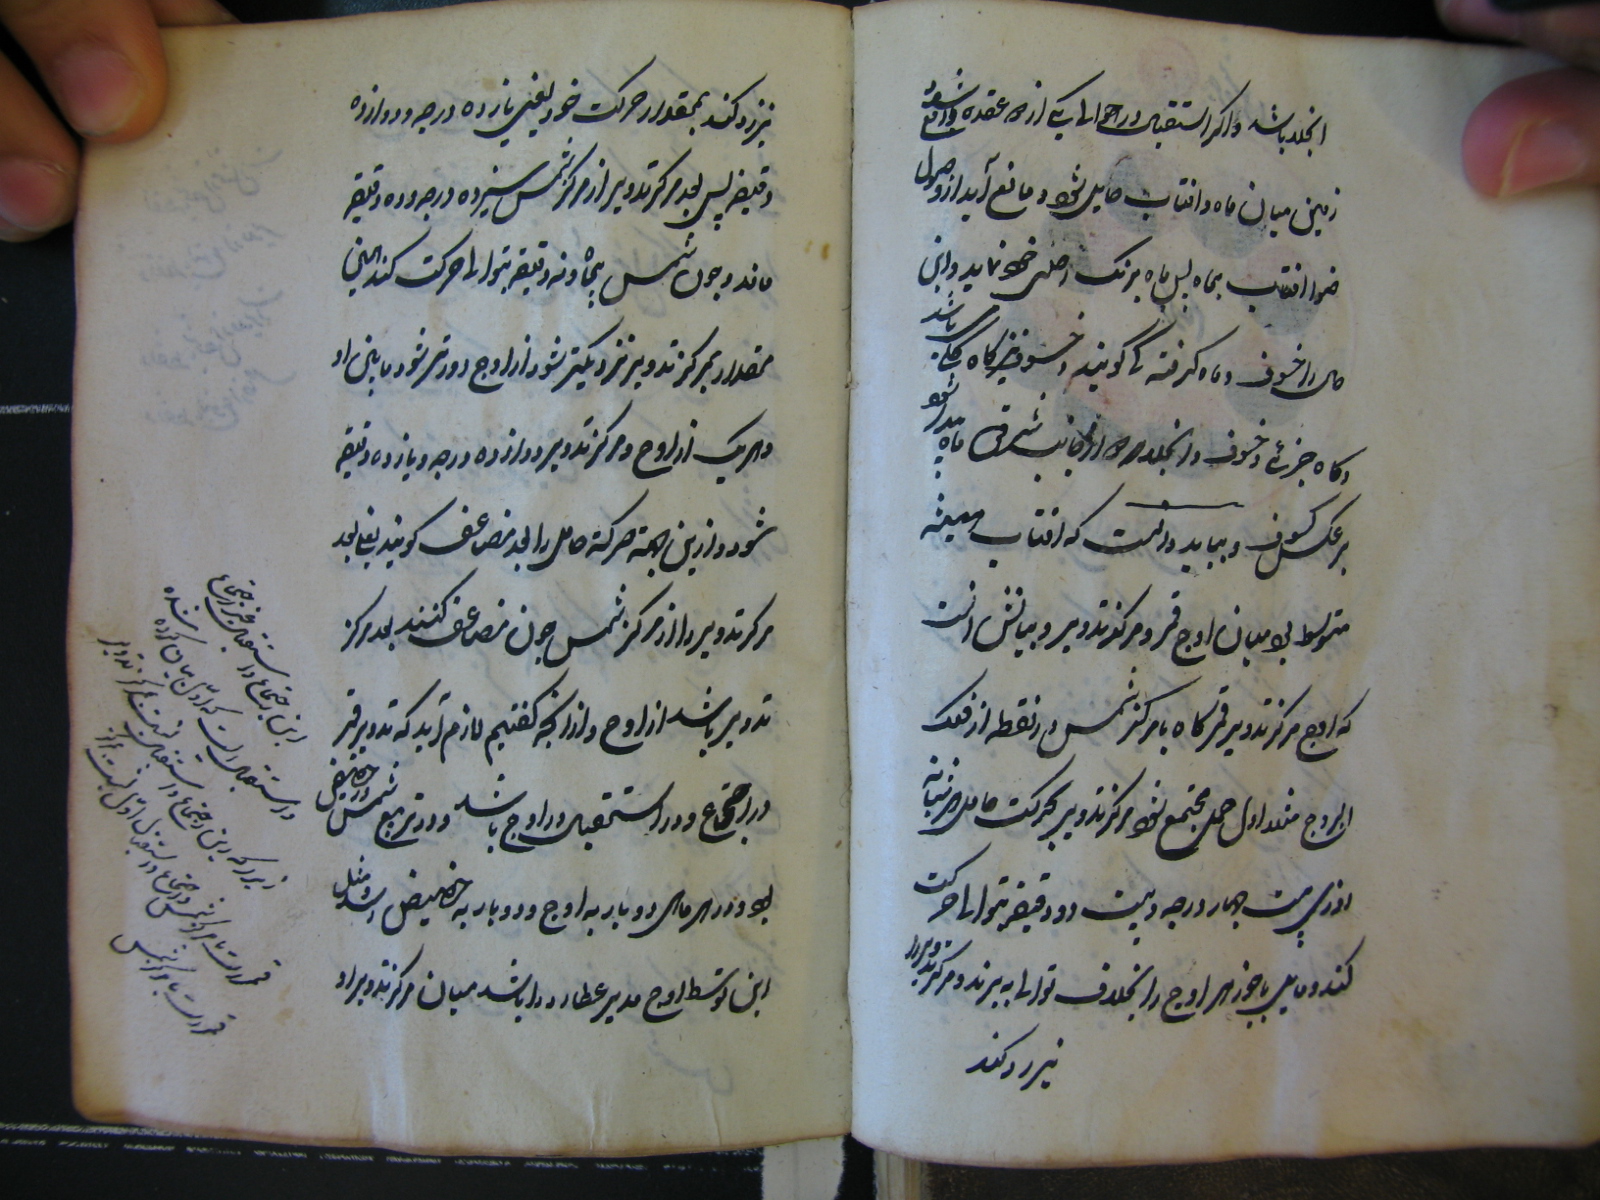 انجلا باشد و اگر استقبال در حوالی یکی از دو عقده واقع شود
زمین میان ماه و افتاب حایل شود و مانع آید از وصول
ضوء افتاب بماه پس ماه برنک اصلی خود نماید و این
حال را خسوف و ماه کرفته کی گویند و خسوف نیز کاه کلی باشد
و کاه جزئی و خسوف و انجلا هر دو از جانب شرقی ماه پیدا شود
بر عکس کسوف و بباید دانست که افتاب همیشه
متوسط بود میان اوج قمر و مرکز تدویر و بیانش انست
که اوج مرکز تدویر قمر کاه با مرکز شمس در نقطه از فلک
البروج مثلا اول حمل مجتمع شود مرکز تدویر بحرکت حامل در شبانه
روزی بیست چهار درجه و بیست دو دقیقه بتوالی حرکت
کند و مایل با جوزهر اوج را بخلاف توالی به برند و مرکز تدویر را
نیز رد کند
نیز رد کند بمقدار حرکت خود یعنی یازده درجه و دوازده
دقیقه پس بعد مرکز تدویر از مرکز شمس سیزده درجه و ده دقیقه
ماند و چون شمس پنجاه و نه دقیقه بتوالی حرکت کند بهمین
مقدار بمرکز تدویر نزدیکتر شود از اوج دورتر شود ما بین او
و هر یک از اوج و مرکز تدویر دوازده درجه و یازده دقیقه
شود و ازین جهة حرکة حامل را بعد مضاعف گویند یعنی بعد
مرکز تدویر را از مرکز شمس چون مضاعف کنند بعد مرکز
تدویر باشد از اوج و از انچه گفتیم لازم آید که تدویر قمر
در اجتماع و در استقبال در اوج باشد و در تربیع شمس در حضیض
بود و در هر ماهی دو بار به اوج و دو بار به حضیض رسد و مثل
این توسط اوج مدیر عطارد را باشد میان مرکز تدویر او
این اجتماع و استقبال غیر اجتماع
و استقبال است که اول بیان کرده شده
زیرا که این اجتماع و استقبال نسبت مرکز تدویر
قمر است با مرکز شمس و اجتماع و استقبال اول نسبت مرکز
قمر است با مرکز شمس